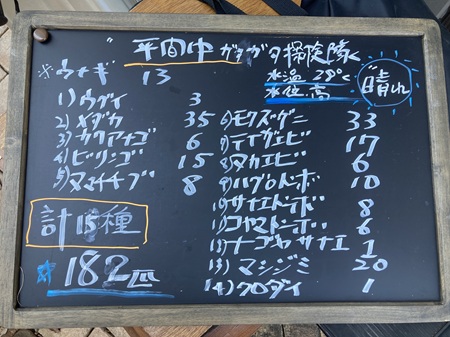 平間中 ガサガサ掃除隊
水温 29℃
晴れ
水位 高
※ウナギ 13
1) ウグイ 3
2) メダカ 35
3) カワアナゴ 6
4) ビリンゴ 15
5) ヌマチチブ 8
計15種
☆182匹
6) モクズガニ 33
7) テナガエビ 17
8) ヌカエビ 6
9) ハグロトンボ 10
10) サナエトンボ 8
11) コヤマトンボ 6
12) ナゴヤサナエ 1
13) マシジミ 20
14) クロダイ 1